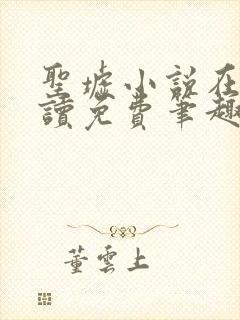 聖墟小說在
讀免費筆趣
董雲上